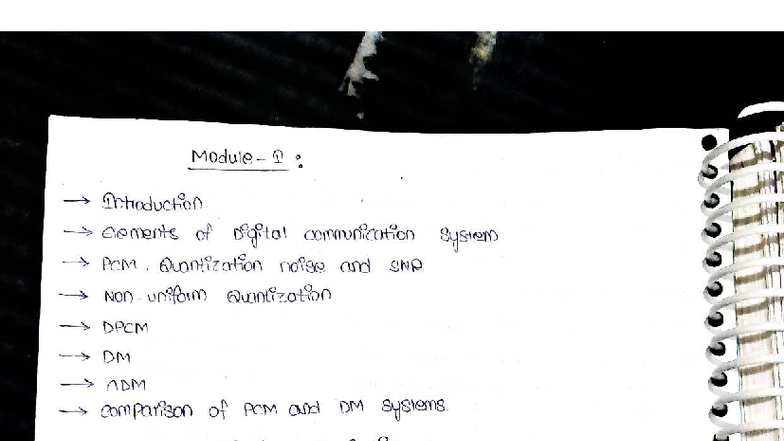 Module - I :
→ Introduction
→ Elements of Digital communication System
→ PCM, Quantization noise and SNR
→ Non-uniform Quantization
→ DPCM
→ DM
→ ADM
→ comparison of PCM and DM systems.